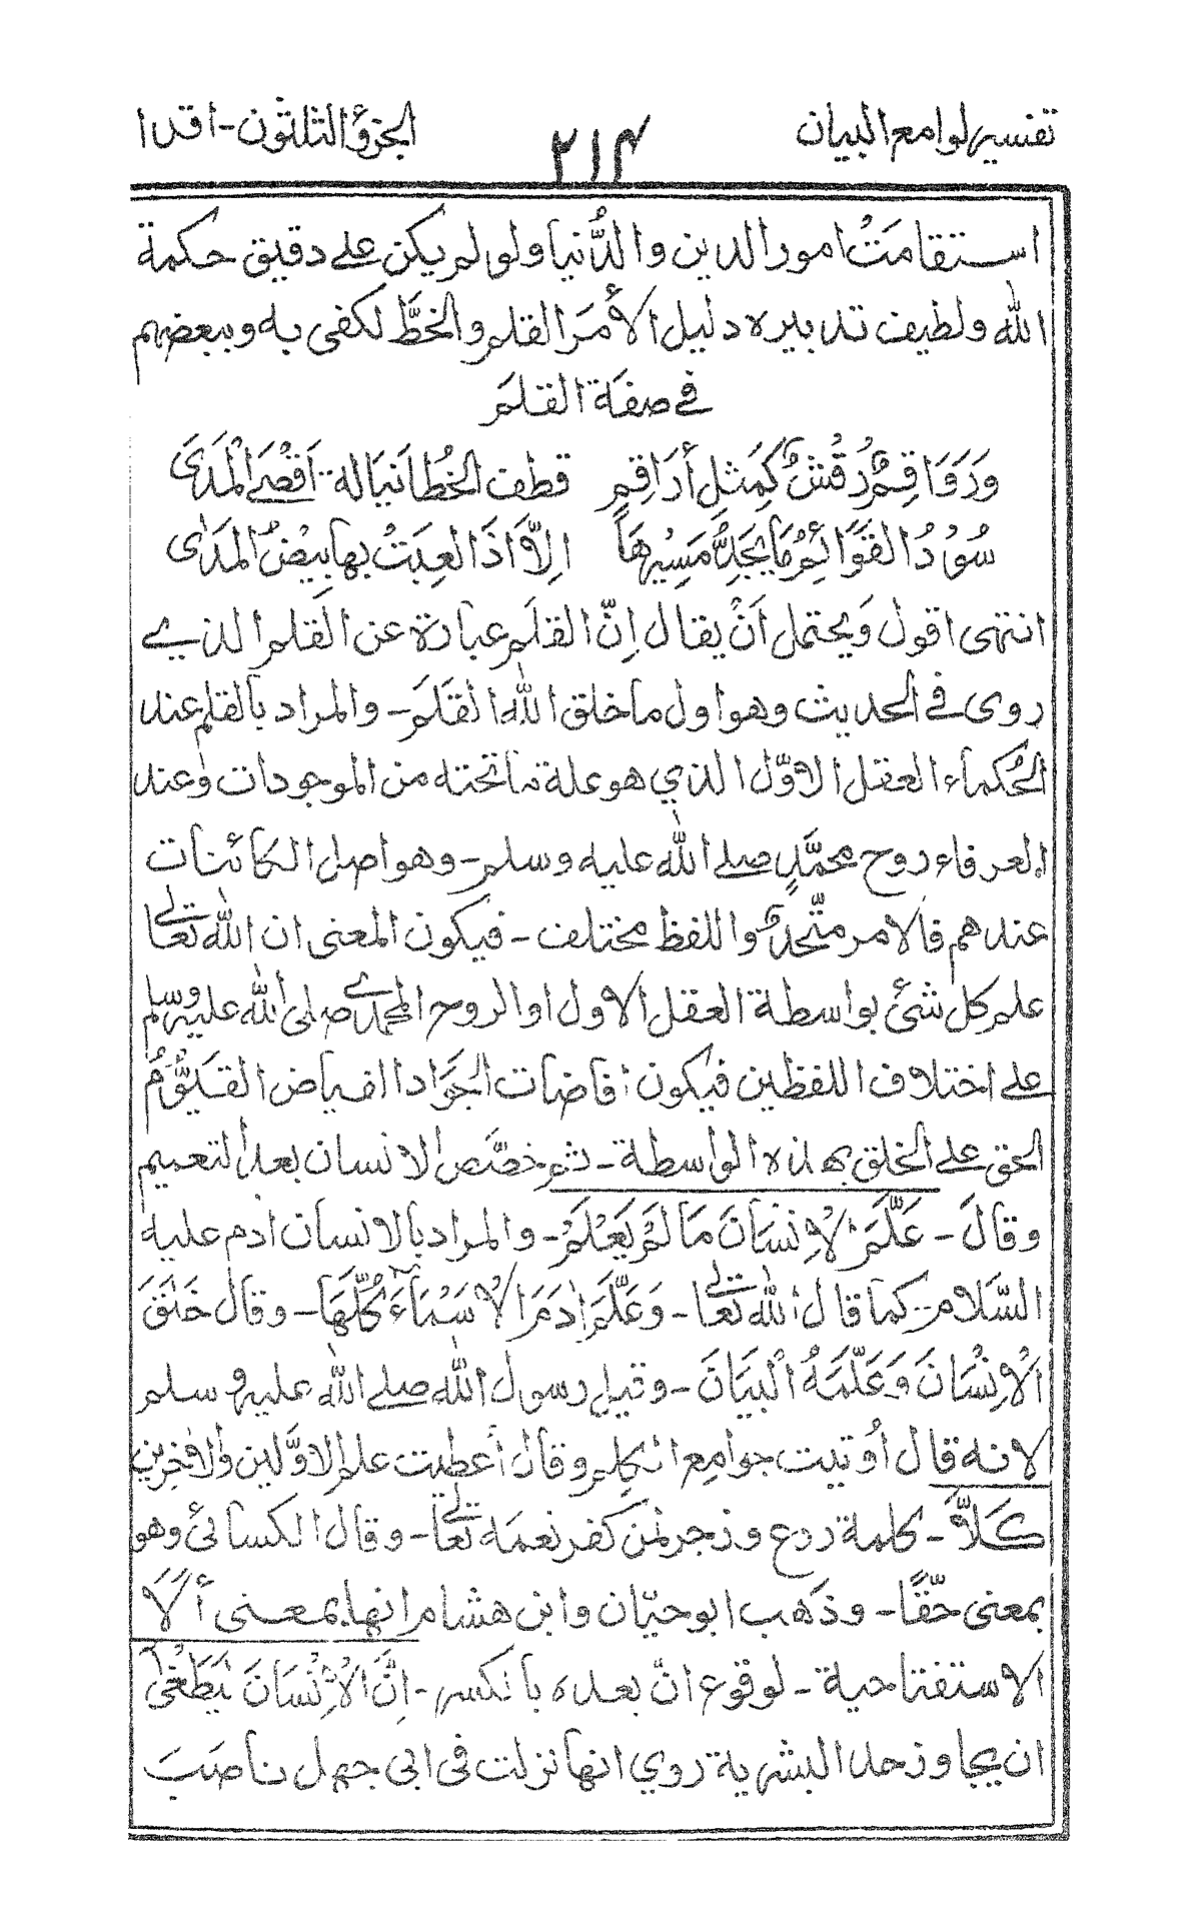 تفسير لوامع البيان
٢١٤
الجزؤ الثلثون - اقرا
استقامتْ امور الدين والدُّنيا ولو لم يكن على دقيق حكمة
الله ولطيف تدبيره دليل الأمرَ القلم والخطَّ لكفى به وببعضهم
في صفة القلمَ
وَرَوَاقِمٌ رُقْشٌ كَمِثلِ أرَاقِمِ قطف الخُطا نَيالة اَقْصَى الْمَدَىَ
سُوْدُ القَوَائِمُ مَا يَجِدُّ مَسِيرهَا اِلاَّ اذَا لَعِبَتْ بها بِيْضُ الْمَدَى
انتهى اقول وَيحتمل اَنْ يقال اِنَّ القلَم عبارة عن القلم الذي
روى في الحديث وهو اول ما خلق الله القَلَمَ - والمراد بالقلم عند
الحُكماء العقل الاوَّل الذي هو علة لما تحته من الموجودات وعند
العرفاء روح محمَّدٍ صلى الله عليه وسلم - وهو اصل الكائنات
عندهم فالامر متَّحدٌ واللفظ مختلف - فيكون المعنى ان الله تعالى
علم كل شئ بواسطة العقل الاول او الروح المحمدي صلى الله عليه وسلم
على اختلاف اللفظين فيكون افاضات الجَوَّاد الفياض القَيُّوْمُ
الحق على الخلق بهذه الواسطة - ثم خصَّص الانسان بعد التعميم
وقالَ - عَلَّمَ الْاِنْسَانَ مَا لَمْ يَعْلَمْ - والمراد بالانسان ادم عليه
السَّلام كما قال الله تعالى - وَعَلَّمَ اٰدَمَ الْاَسْمَاءَ كُلَّهَا - وقال خَلَقَ
الْاِنْسَانَ وَعَلَّمَهُ الْبَيَانَ - وقيل رسول الله صلى الله عليه وسلم
لانه قال اُوتيت جوامِع الكلم وقال أعطيت علم الاوَّلين والاٰخرين
كَلاَّ - كلمة ردع وزجر لمن كفر نعمه تعالى - وقال الكسائئ وهو
بمعنى حَقّاً - وذهب ابو حيّان وابن هشام انها بمعنى ألَا
الاستفتاحية - لوقوع انّ بعده بالكسر - اِنَّ الْاِنْسَانَ لَيَطْغٰى
ان يجاوز حد البشرية روي انها نزلت فى ابى جهل ناصَبَ